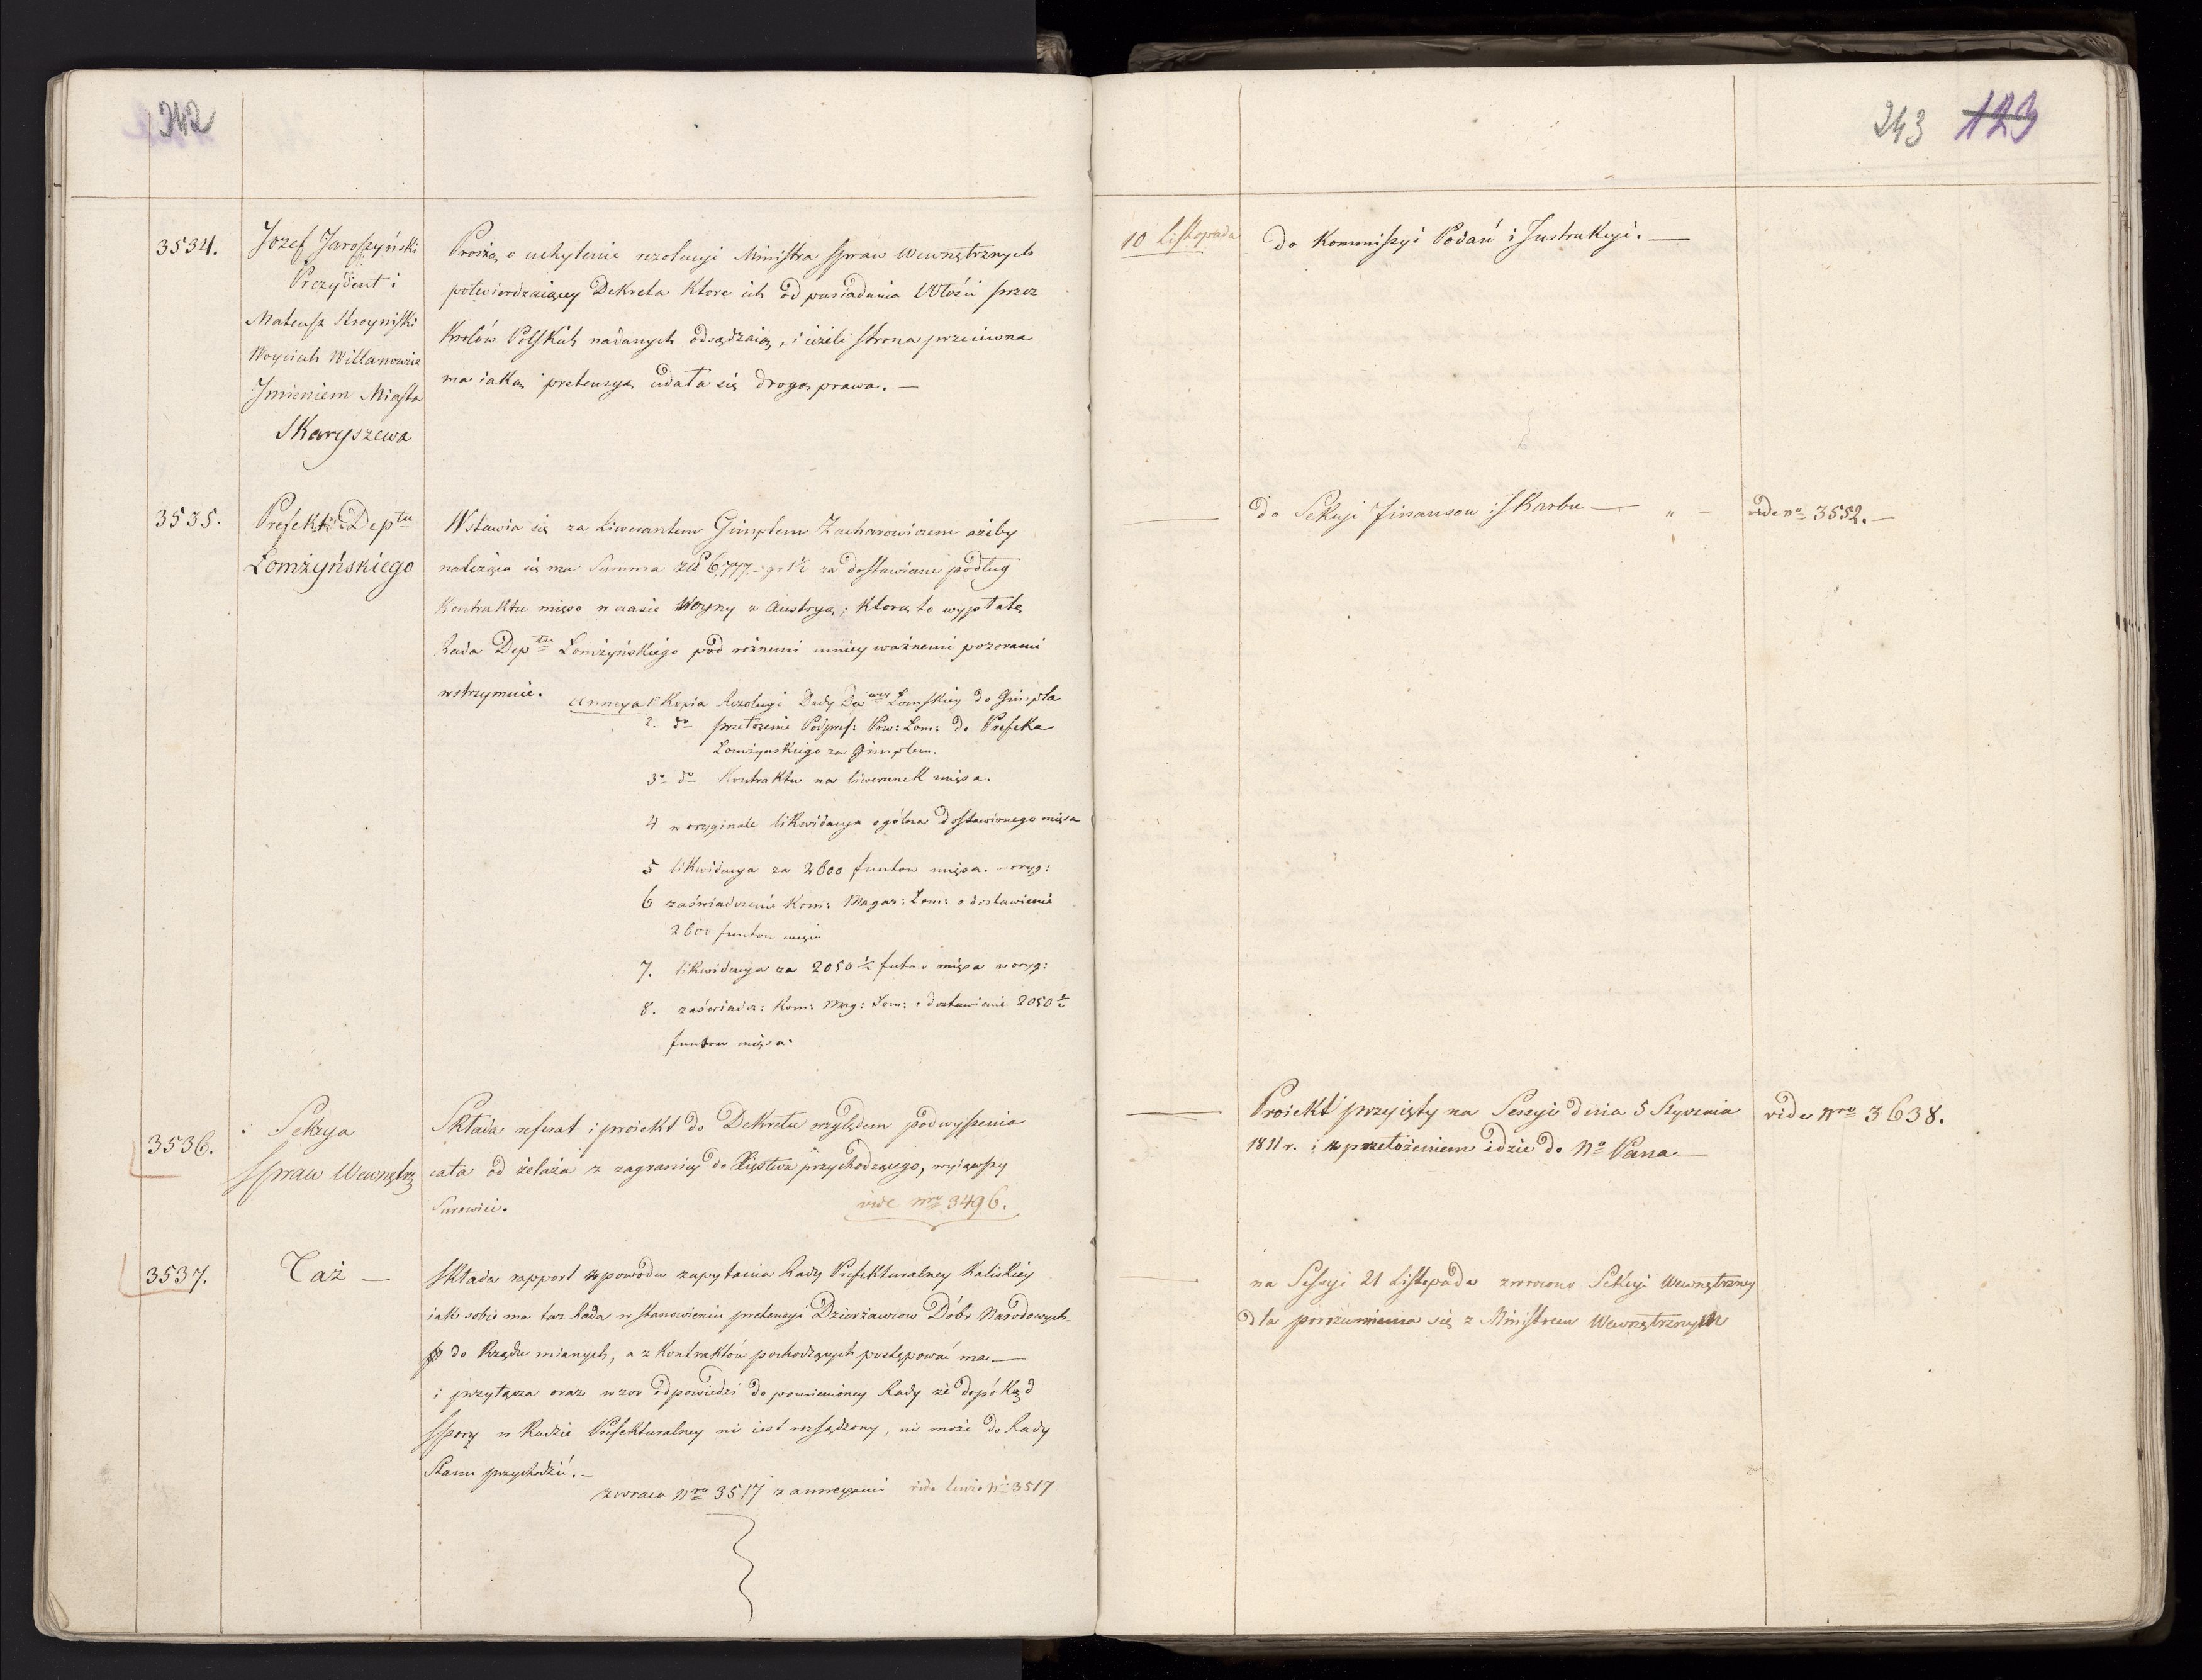 242
3534.
Jozef Jaroszyński
Prezydent i
Mateusz Stroyniski
Woyciech Willanowicz
Jmieniem Miasta
Skaryszewa
Proszą o uchylenie rezolucyi Ministra Spraw Wewnętrznych
potwierdzaiącey Dekreta które ich od posiadania Włóści przez
Krolów Polskich nadanych odsądzaią, i ieżeli strona przeciwna
ma iaką pretensyą udała się drogą prawa. —
3535.
Prefekt Deptu
Łomżyńskiego
Wstawia się za Liwerantem Gimplem Zacharowiczem ażeby
należąca się ma Summa złł 6,777. gr 1½ za dostawiane podług
Kontraktu mięso w czasie Woyny z Austryą; którą to wypłatę
Rada Deptu Łomżyńskiego pod różnemi mniey ważnemi pozorami
wstrzymuie.
Annexa 1° Kopia Rezolucyi Rady Deptowey Łomskiey do Gimpla
2. do przełożenie Podpref: Pow: Łom: do Prefekta
Łomżynskiego za Gimplem.
3o do Kontraktu na liwerunek mięsa.
4 w oryginale likwidacya ogólna dostawionego mięsa
5 likwidacya za 2600 funtow mięsa. w oryg:
6 zaświadczenie Kom: Magaz: Łom: o dostawienie
2600 funtow mięsa
7. likwidacya za 2050½ futow mięsa w oryg:
8. zaświadcz: Kom: Mag: Łom: o dostawienie 2050½
funtow mięsa.
3536.
Sekcya
Spraw Wewnętrz
Składa referat i proiekt do Dekretu względem podwyszenia
cała od żelaza z zagranicy do Xięstwa przychodzącego, wyiąwszy
Surowiec.
vide nro 3496.
3537.
Taż —
Składa rapport z powodu zapytania Rady Prefekturalney Kaliskiey
iak sobie ma taż Rada w stanowieniu pretensyi Dzierżawcow Dóbr Narodowych
do Rządu mianych, a z Kontraktów pochodzących postępować ma —
i przyłącza oraz wzor odpowiedzi do pomienioney Rady że dopó Kąd
Spory w Radzie Prefekturalney nie iest rozsądzony, nie może do Rady
Stanu przychodzić. —
zwraca Nro 3517 z annexami vide No 3517
243 123
10 Listopada
do Kommissyi Podań i Jnstrukcyi. —
do Sekcyi Finansow i Skarbu — " —
vide no 3552. —
Proiekt przyięty na Sessyi dnia 5 Stycznia
1811 r. i z przełożeniem idzie do No Pana —
vide Nro 3638.
na Sessyi 21 Listopada zwrocono Sekcyi Wewnętrzney
dla porozumienia się z Ministrem Wewnętrznym